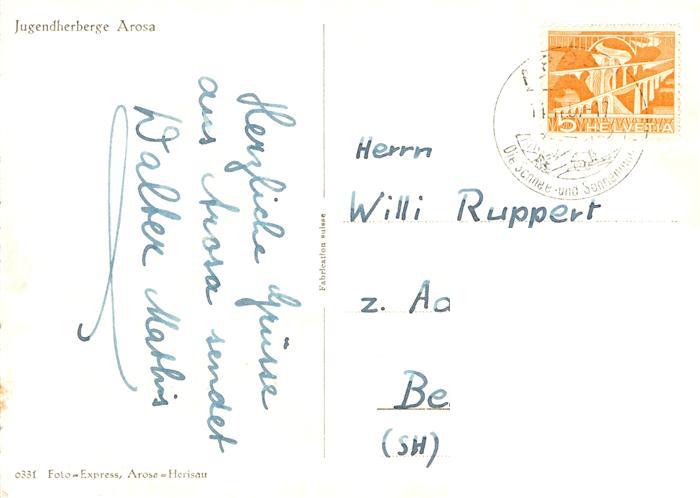 Jugendherberge Arosa
Herzliche Grüsse
aus Arosa sendet
Walter Mathis
Fabrication suisse
5 HELVETIA
Die Schnee- und Sonnen
Herrn
Willi Ruppert
z. Ad
Be
(SH)
0331 Foto=Express, Arosa=Herisau